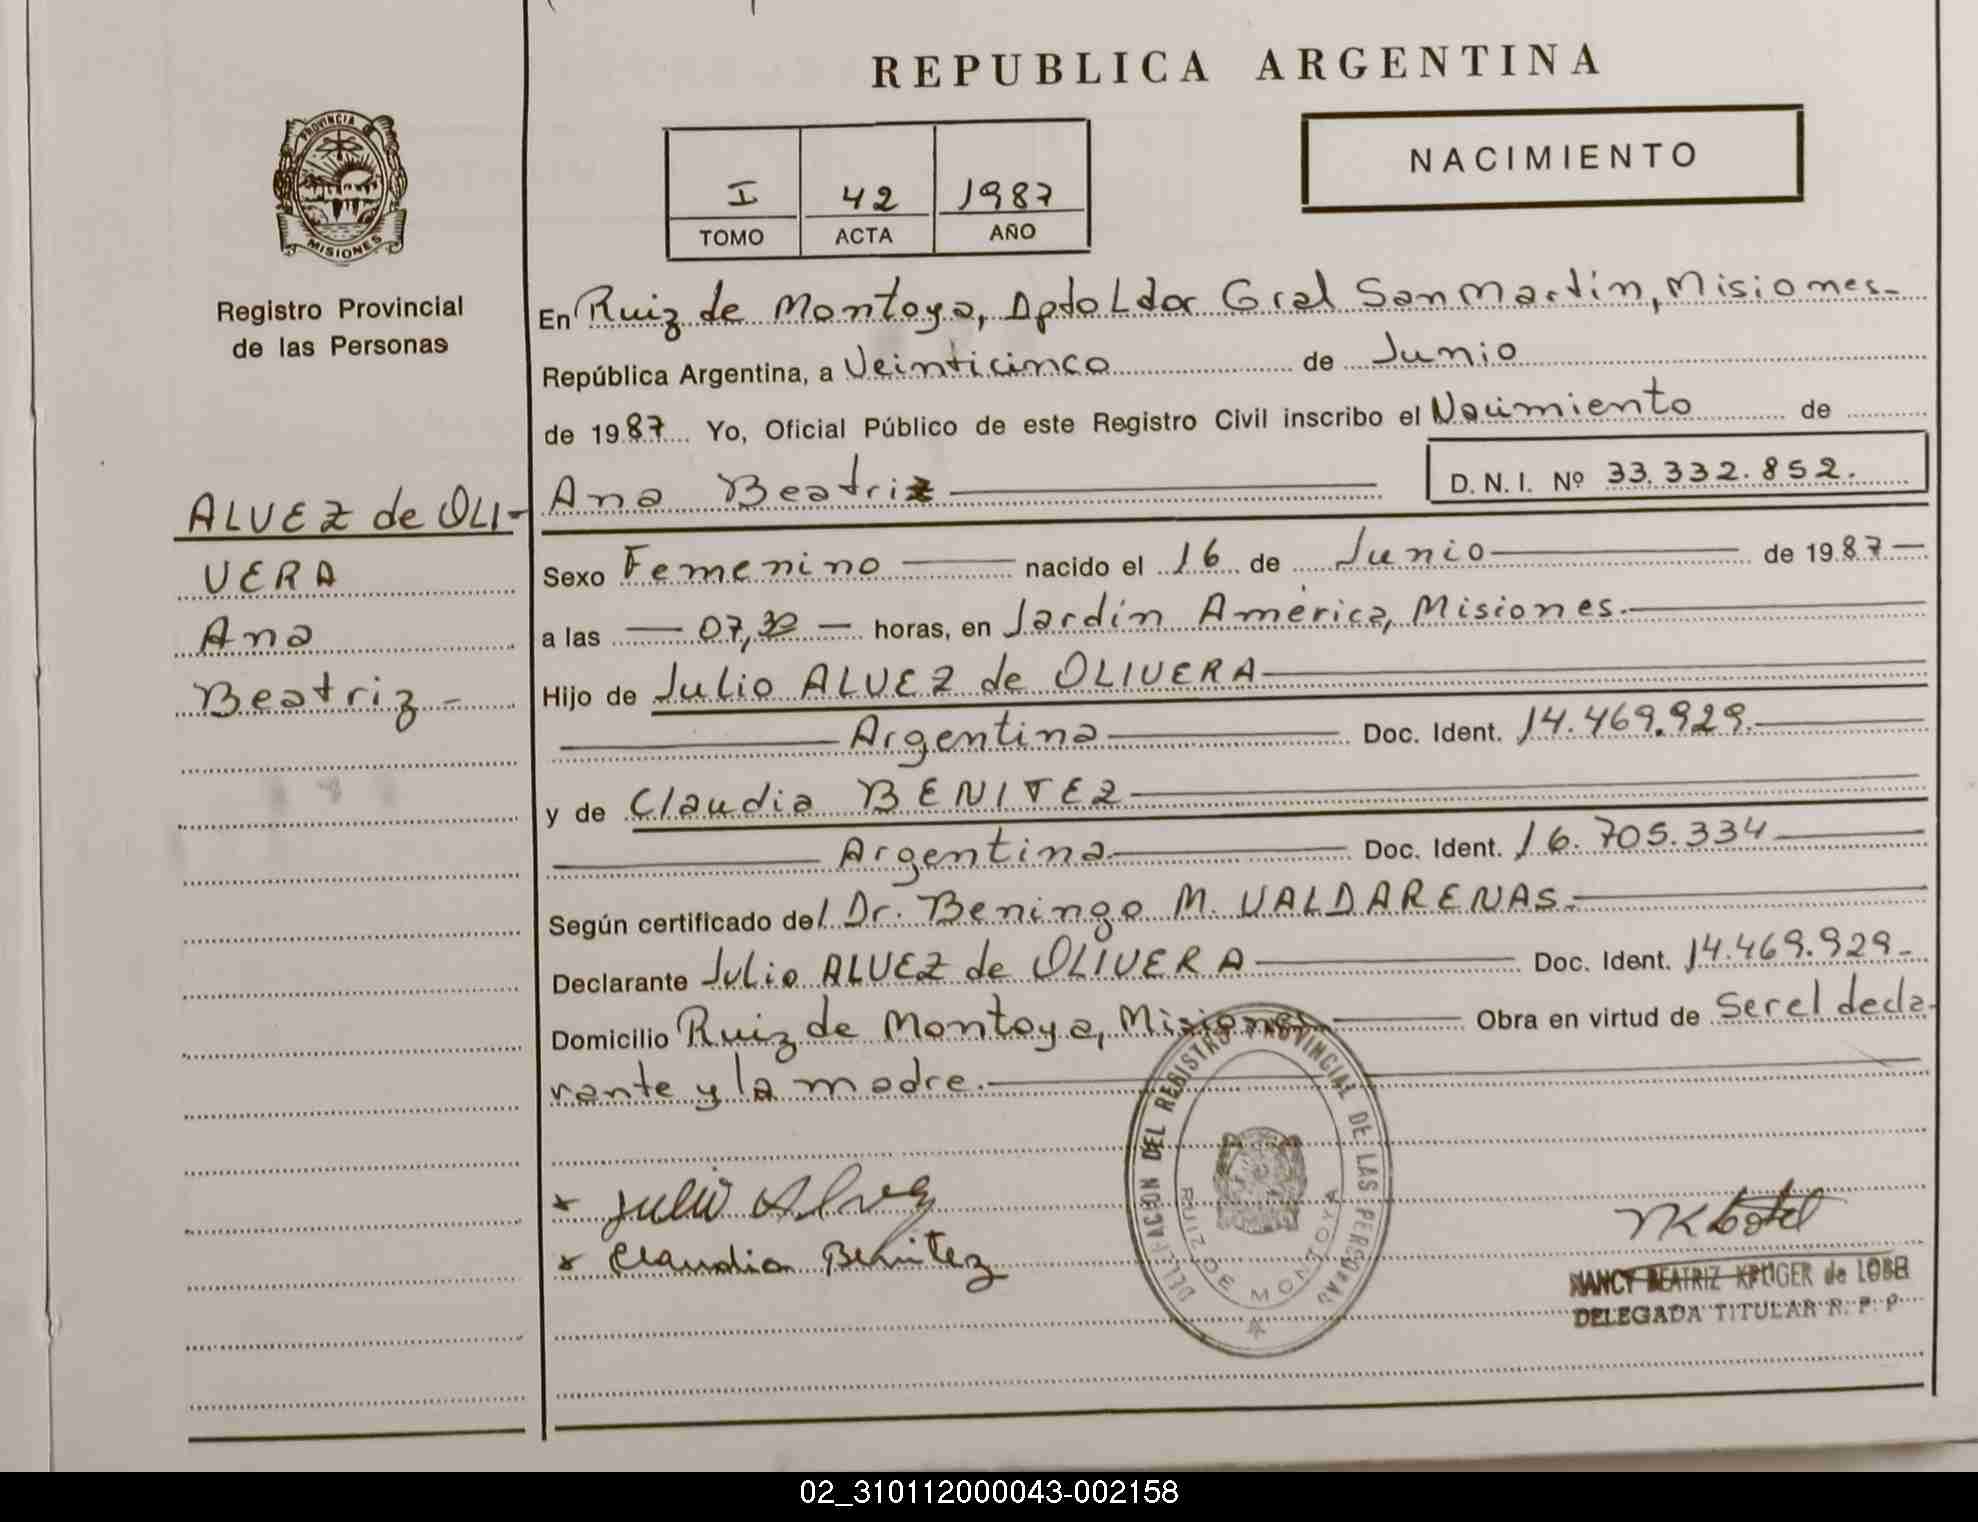 REPUBLICA ARGENTINA
PROVINCIA DE
MISIONES
Registro Provincial
de las Personas
I 42 1987
TOMO ACTA AÑO
NACIMIENTO
En Ruiz de Montoya, Dpto Ldor Gral San Martín, Misiones.-
República Argentina, a Veinticinco de Junio
de 1987 Yo, Oficial Público de este Registro Civil inscribo el Nacimiento de
ALVEZ de OLI-
VERA
Ana
Beatriz -
Ana Beatriz D. N. I. Nº 33.332.852.
Sexo Femenino nacido el 16 de Junio de 1987 -
a las — 07,30 — horas, en Jardín América, Misiones.
Hijo de Julio ALVEZ de OLIVERA
Argentina Doc. Ident. 14.469.929.
y de Claudia BENITEZ
Argentina Doc. Ident. 16.705.334
Según certificado del Dr. Beningo M. VALDARENAS.
Declarante Julio ALVEZ de OLIVERA Doc. Ident. 14.469.929.-
Domicilio Ruiz de Montoya, Misiones Obra en virtud de Ser el decla-
rante y la madre.
DELEGACION DEL REGISTRO PROVINCIAL DE LAS PERSONAS
RUIZ DE MONTOYA
x Julio Alvez
x Claudia Benitez
NANCY BEATRIZ KRUGER de LOBEL
DELEGADA TITULAR R. P. P.
02_310112000043-002158